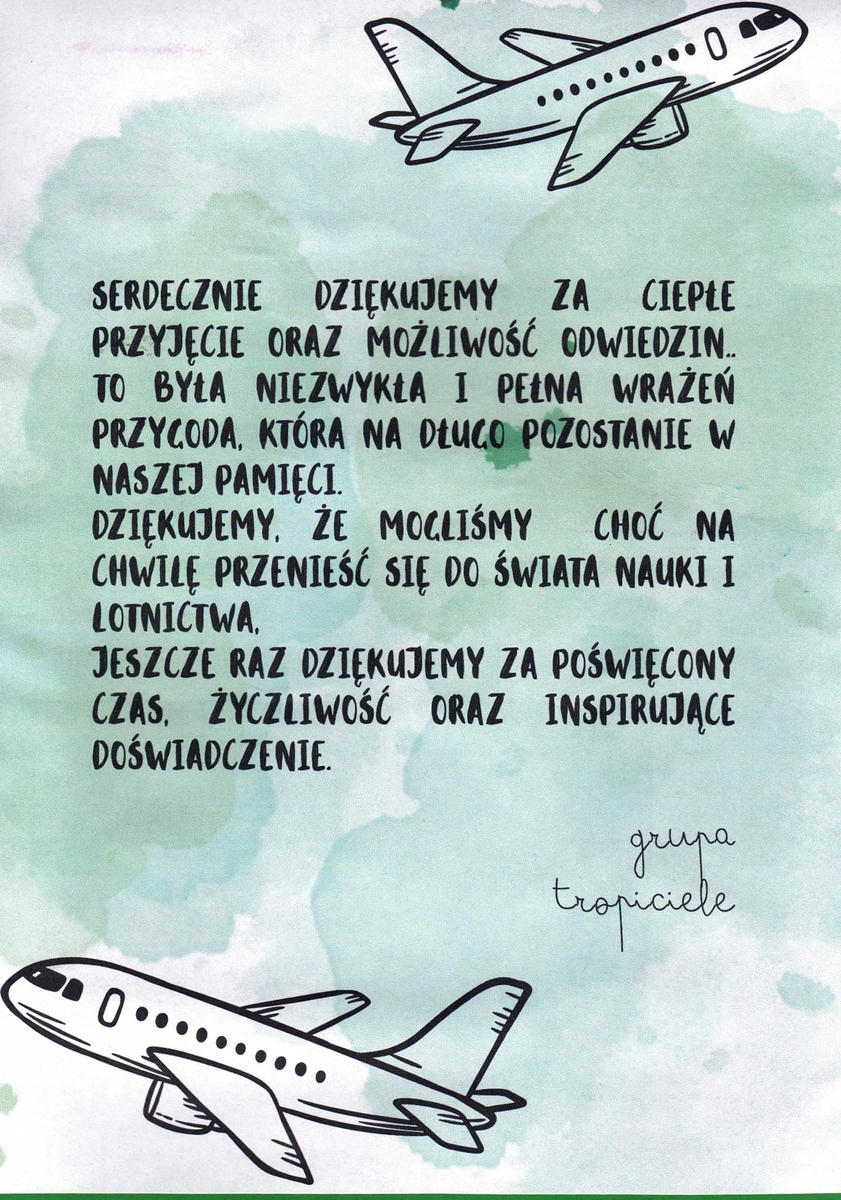 SERDECZNIE DZIĘKUJEMY ZA CIEPŁE
PRZYJĘCIE ORAZ MOŻLIWOŚĆ ODWIEDZIN..
TO BYŁA NIEZWYKŁA I PEŁNA WRAŻEŃ
PRZYGODA, KTÓRA NA DŁUGO POZOSTANIE W
NASZEJ PAMIĘCI.
DZIĘKUJEMY, ŻE MOGLIŚMY CHOĆ NA
CHWILĘ PRZENIEŚĆ SIĘ DO ŚWIATA NAUKI I
LOTNICTWA,
JESZCZE RAZ DZIĘKUJEMY ZA POŚWIĘCONY
CZAS, ŻYCZLIWOŚĆ ORAZ INSPIRUJĄCE
DOŚWIADCZENIE.
grupa
tropiciele